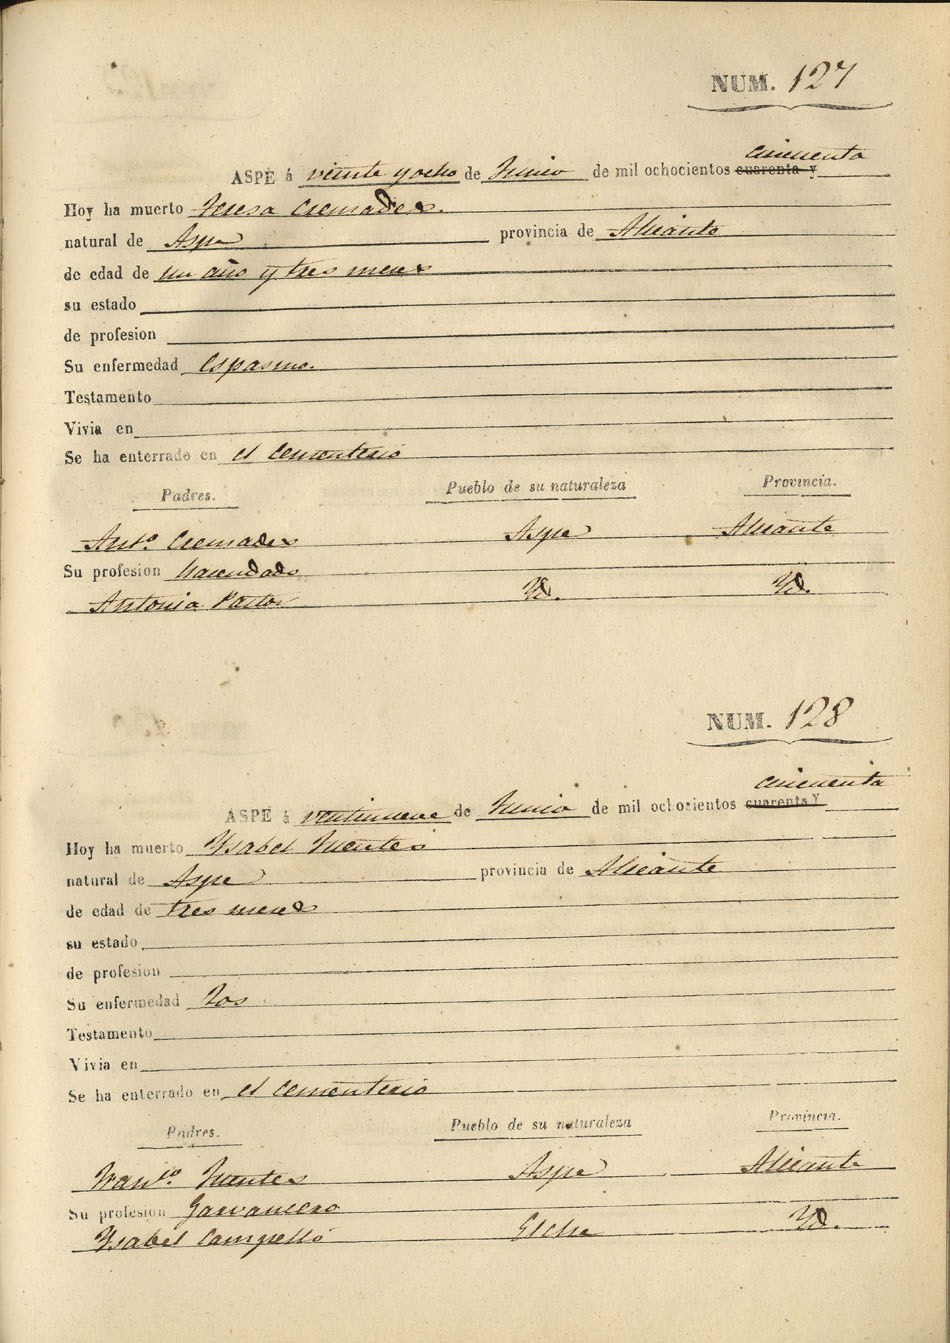 NUM. 127
cincuenta
ASPE á veinte y ocho de Junio de mil ochocientos cuarenta y
Hoy ha muerto Teresa Cremades.
natural de Aspe provincia de Alicante
de edad de un año y tres meses
su estado
de profesion
Su enfermedad Espasmo.
Testamento
Vivia en
Se ha enterrado en el Cementerio
Padres. Pueblo de su naturaleza Provincia.
Ant.º Cremades Aspe Alicante
Su profesion hacendado
Antonia Pastor Yd. Yd.
NUM. 128
cincuenta
ASPE á ventinueve de Junio de mil ochocientos cuarenta y
Hoy ha muerto Ysabel Fuentes
natural de Aspe provincia de Alicante
de edad de tres meses
su estado
de profesion
Su enfermedad Tos
Testamento
Vivia en
Se ha enterrado en el Cementerio
Padres. Pueblo de su naturaleza Provincia.
Fuentes Aspe Alicante
Su profesion
Ysabel Campello Elche Yd.